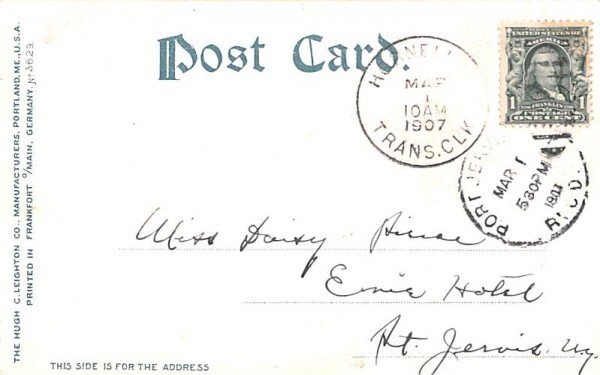 Post Card.
THE HUGH C. LEIGHTON CO., MANUFACTURERS, PORTLAND, ME., U.S.A.
PRINTED IN FRANKFORT O/MAIN, GERMANY. No 3629
HORNELL
MAR
1
10AM
1907
TRANS. CLK
UNITED STATES OF
AMERICA
FRANKLIN
1 POSTAGE 1
ONE CENT
PORT JERVIS
MAR 1
530PM
1907
REC'D.
Miss Daisy
Erie Hotel
Pt. Jervis. Ny.
THIS SIDE IS FOR THE ADDRESS